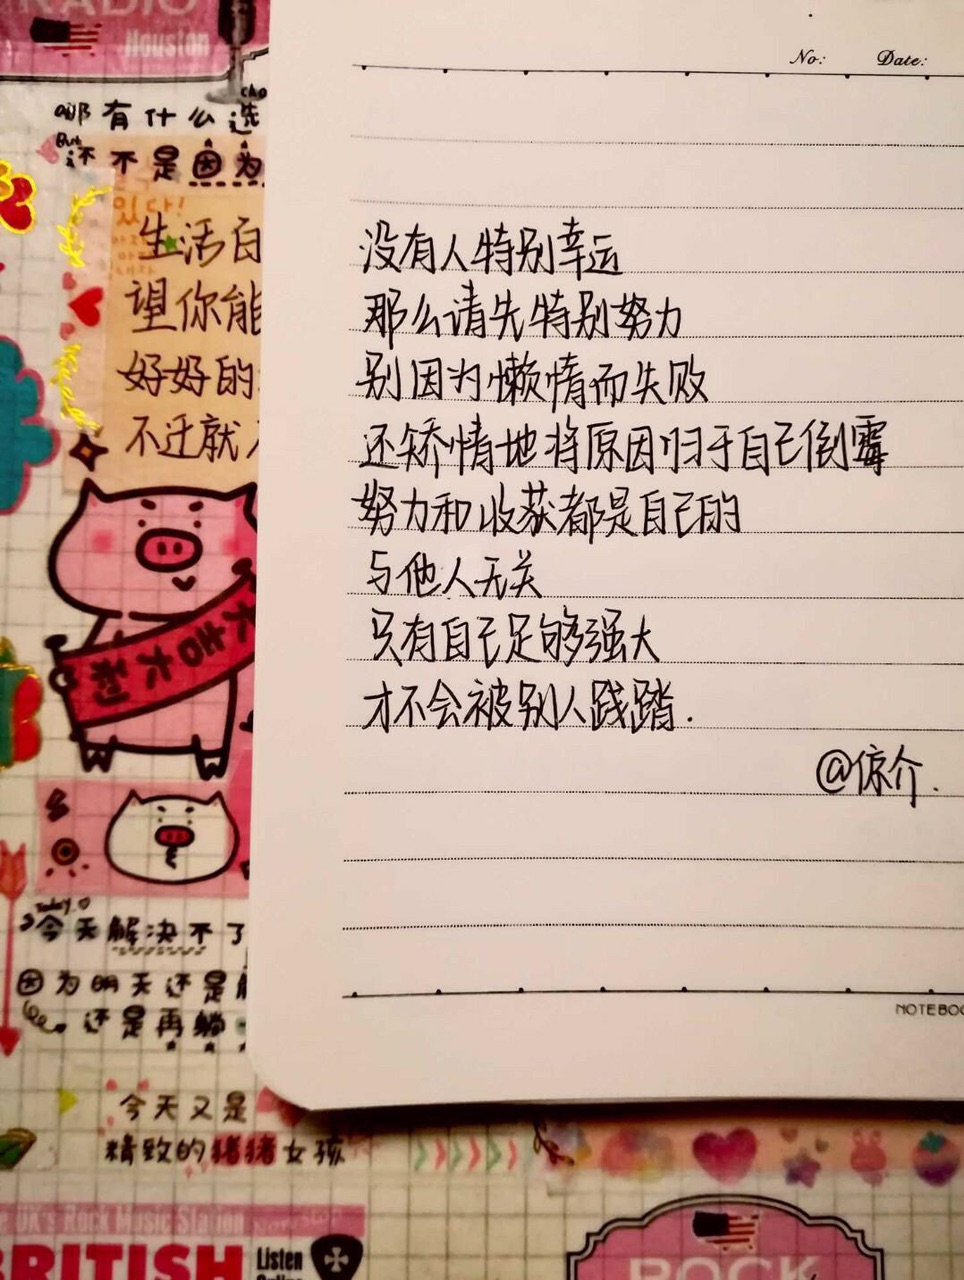 RADIO
Houston
cho
那有什么选
But
还不是因为
있다!
生活百
望你能
好好的
不迁就
大吉大利
Today
今天解决不了
因为明天还是
还是再躺
今天又是
精致的猪猪女孩
No: Date:
没有人特别幸运
那么请先特别努力
别因为懒惰而失败
还矫情地将原因归于自己倒霉
努力和收获都是自己的
与他人无关
只有自己足够强大
才不会被别人践踏.
@惊介.
NOTEBOO
UK's Rock Music Station Non Stop
BRITISH
Listen
Online
ROCK